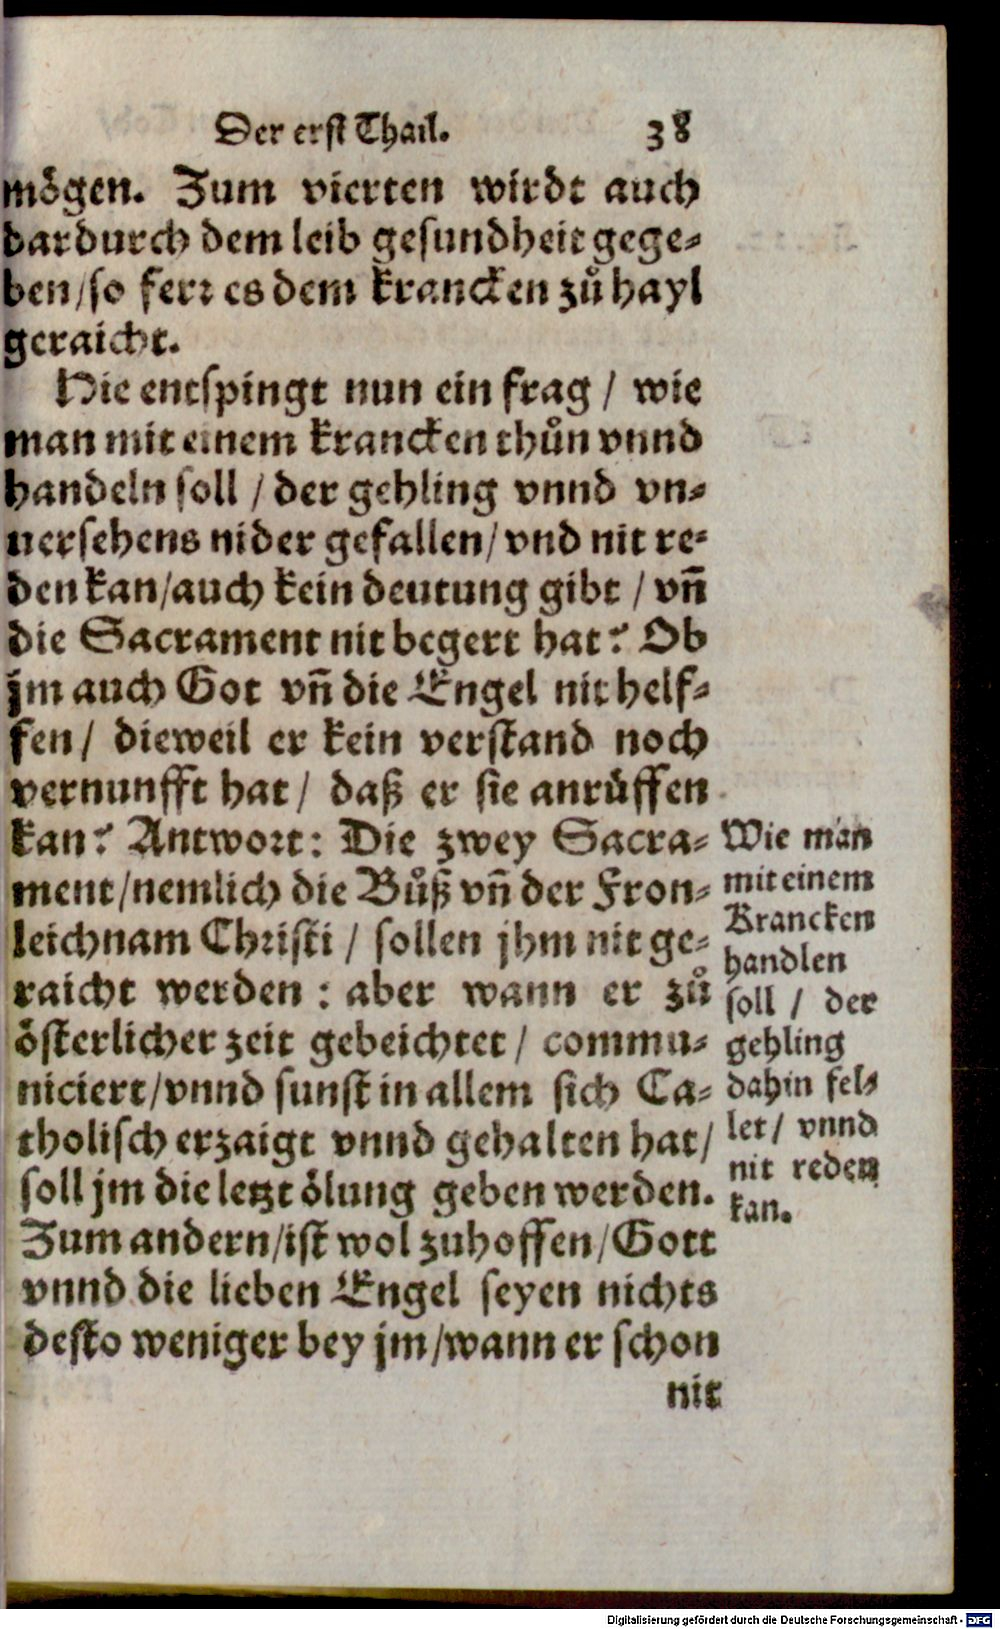 Der erst Thail. 38
mögen. Zum vierten wirdt auch
dardurch dem leib gesundheit gege⸗
ben/so ferꝛ es dem krancken zů hayl
geraicht.
Hie entspingt nun ein frag / wie
man mit einem krancken thůn vnnd
handeln soll / der gehling vnnd vn⸗
uersehens nider gefallen/ vnd nit re⸗
den kan/auch kein deutung gibt / vn̄
die Sacrament nit begert hat? Ob
jm auch Got vn̄ die Engel nit helf⸗
fen / dieweil er kein verstand noch
vernunfft hat / daß er sie anrůffen
kan? Antwoꝛt: Die zwey Sacra⸗
ment/nemlich die Bůß vn̄ der Fron⸗
leichnam Chꝛisti / sollen jhm nit ge⸗
raicht werden : aber wann er zů
österlicher zeit gebeichtet / commu⸗
niciert/vnnd sunst in allem sich Ca⸗
tholisch erzaigt vnnd gehalten hat/
soll jm die letzt ölung geben werden.
Zum andern/ist wol zuhoffen/Gott
vnnd die lieben Engel seyen nichts
desto weniger bey jm/wann er schon
nit
Wie man
mit einem
Krancken
handlen
soll / der
gehling
dahin fel⸗
let / vnnd
nit reden
kan.
Digitalisierung gefördert durch die Deutsche Forschungsgemeinschaft - DFG